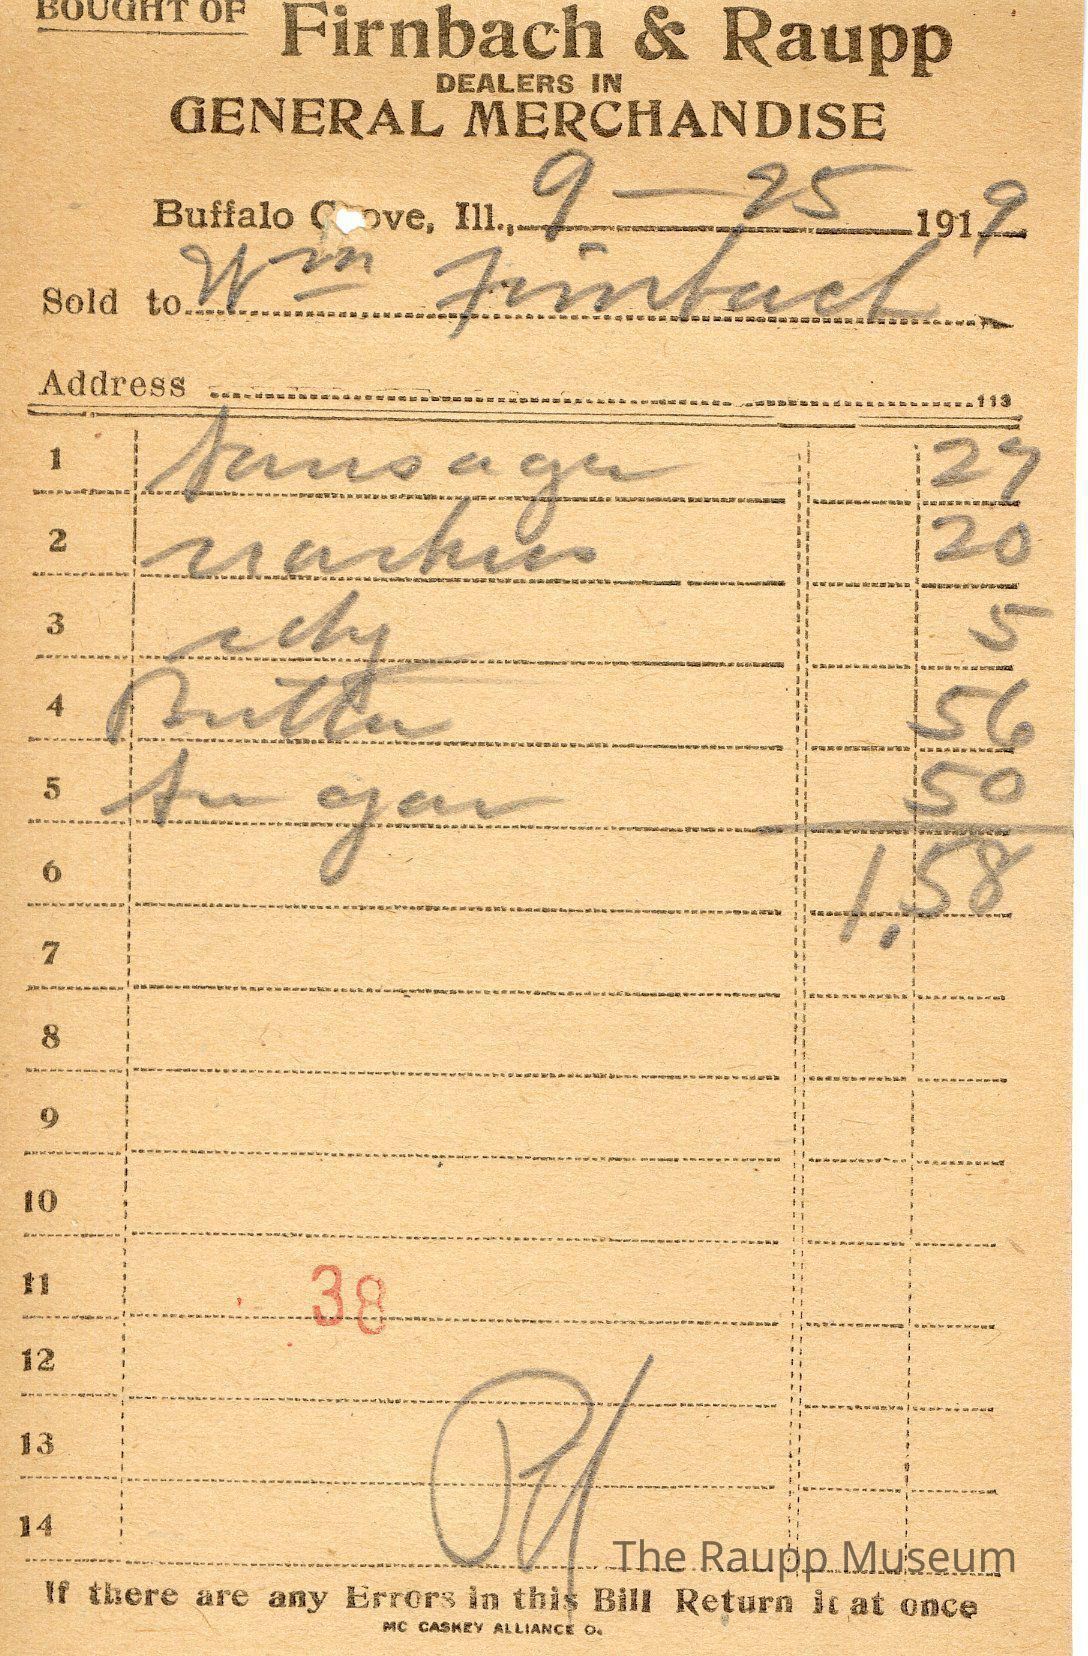 BOUGHT OF
Firnbach & Raupp
DEALERS IN
GENERAL MERCHANDISE
Buffalo G ove, Ill., 9 — 25 1919
Sold to Wm Firnbach
Address
113
1 Sausage 27
2 crackers 20
3 5
4 Butter 56
5 Sugar 50
6 1,58
7
8
9
10
11 38
12
13
14
Pd
The Raupp Museum
If there are any Errors in this Bill Return it at once
MC CASKEY ALLIANCE O.